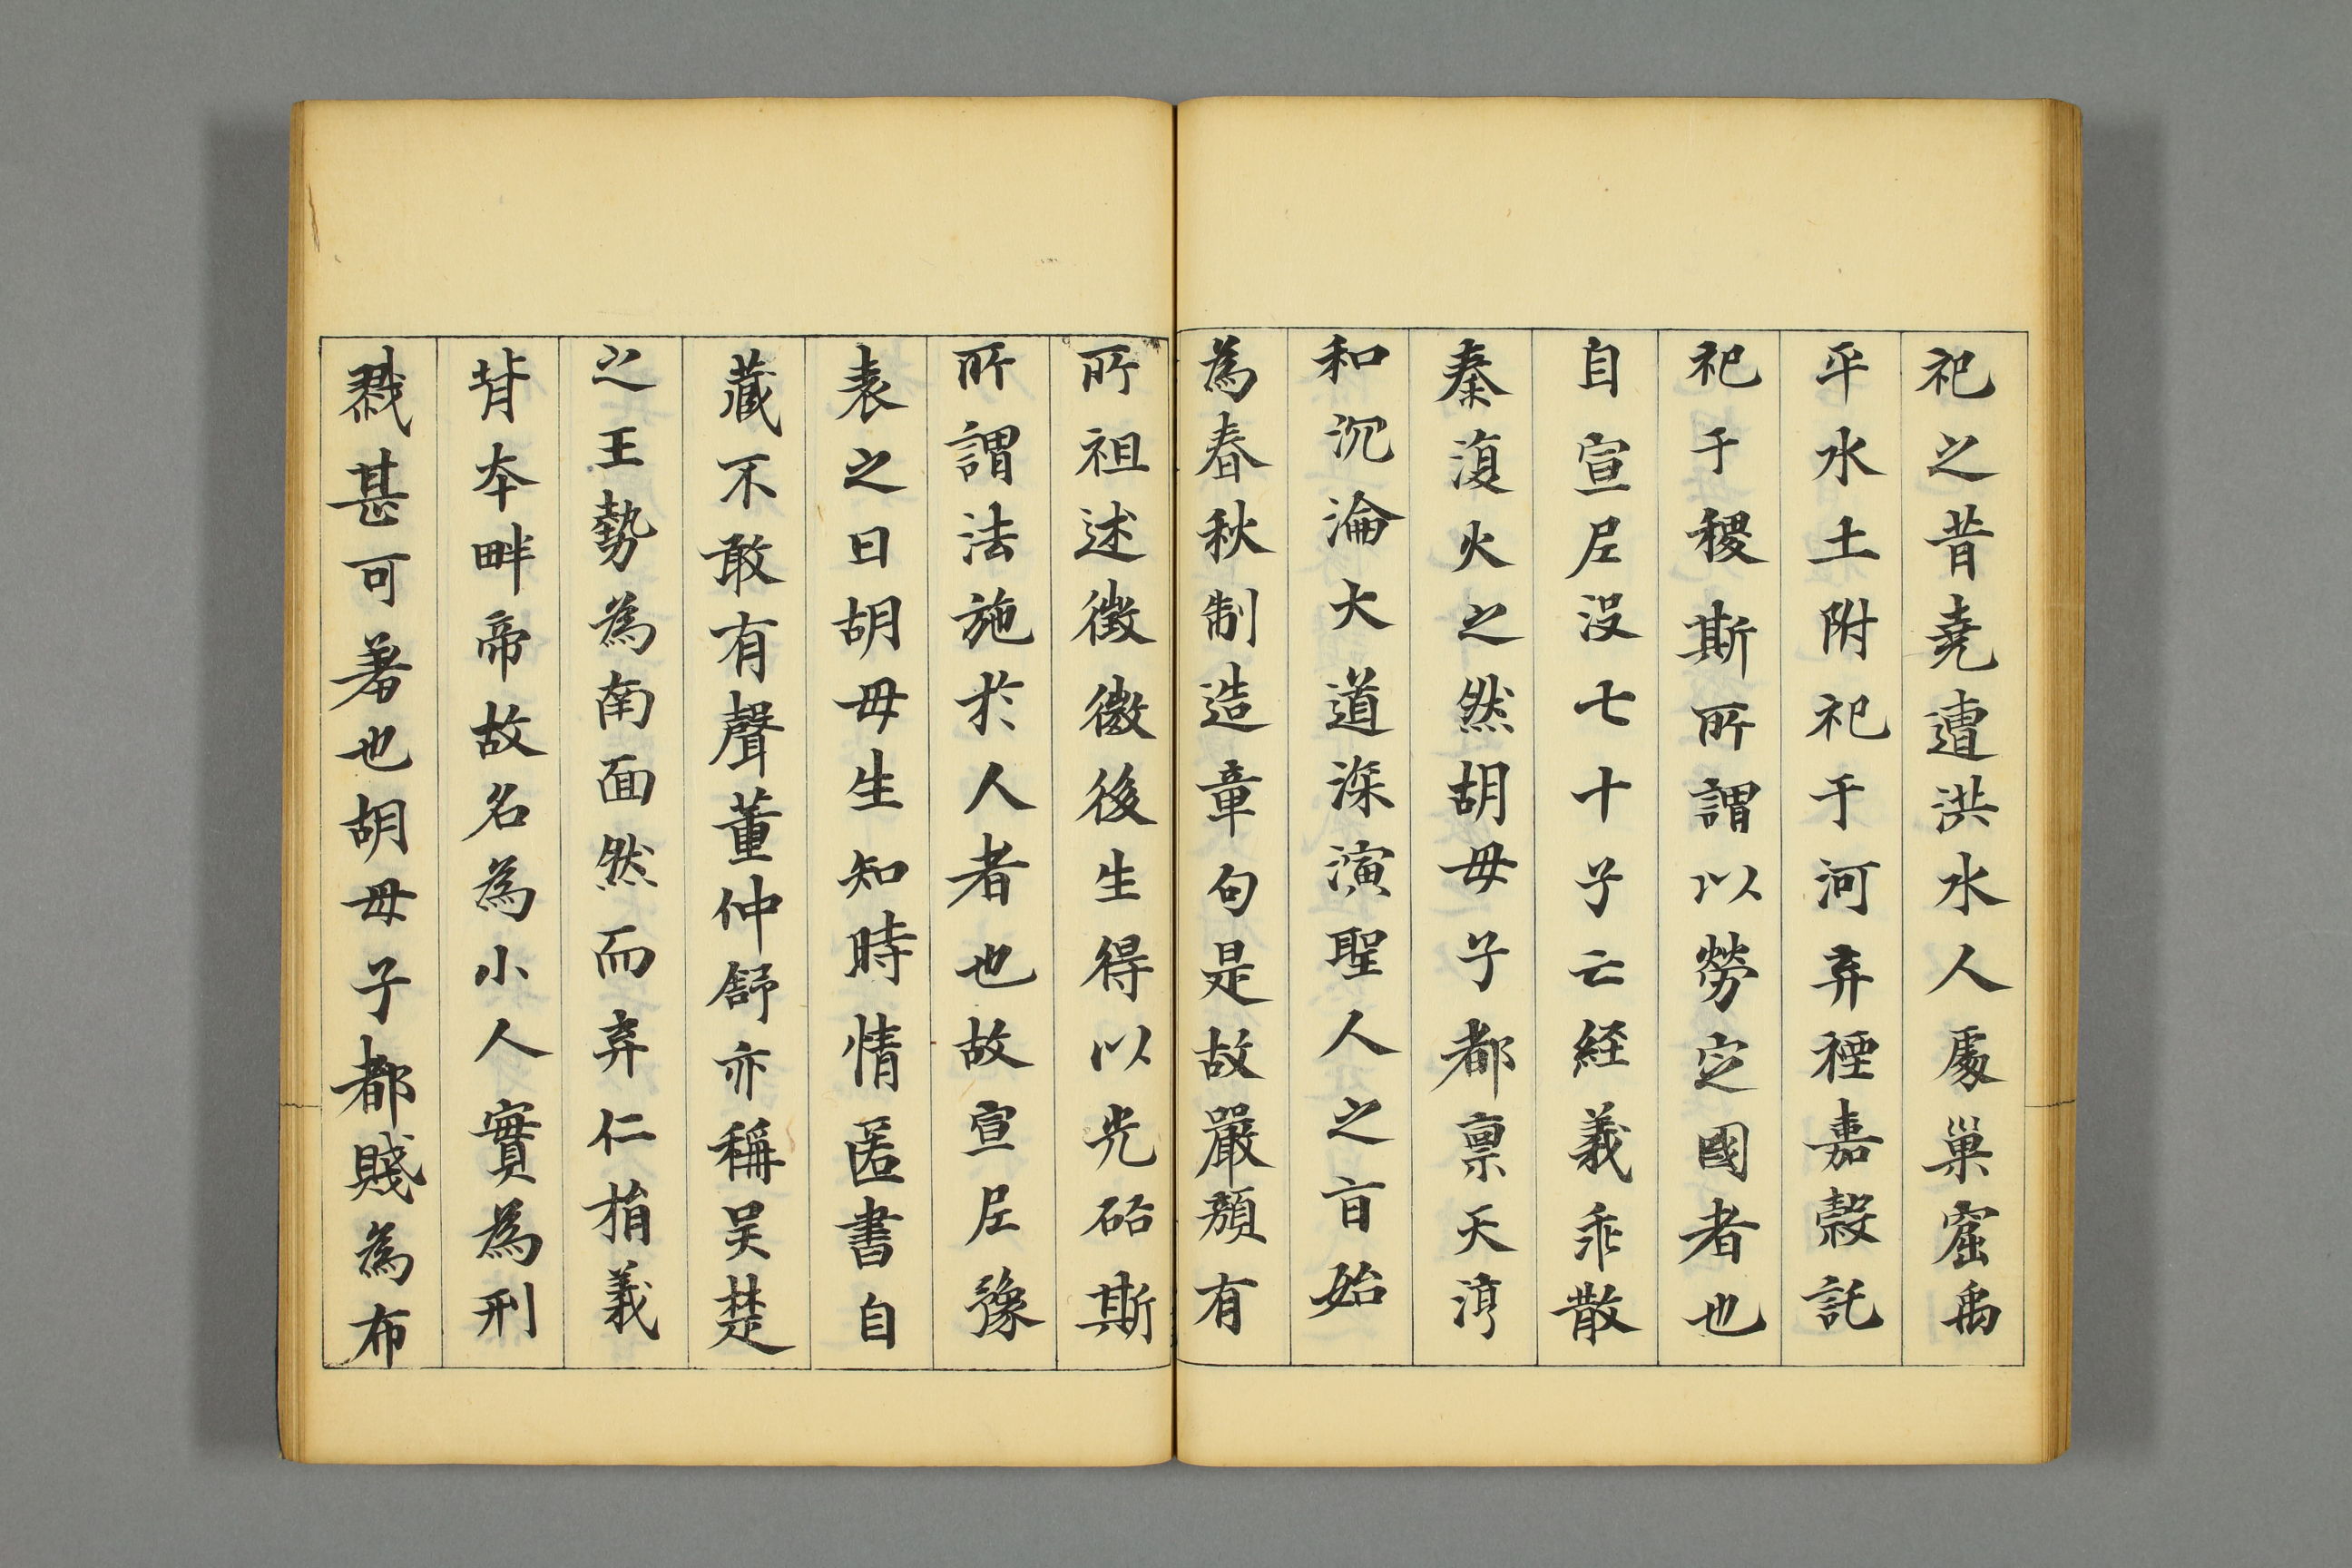 祀之昔堯遭洪水人處巢窟禹
平水土附祀于河弃禋嘉穀託
祀于稷斯所謂以勞定國者也
自宣尼沒七十子亡経義乖散
秦復火之然胡毋子都禀天淳
和沉淪大道深演聖人之旨始
為春秋制造章句是故嚴顏有
所祖述徴徽後生得以光䂮斯
所謂法施於人者也故宣尼豫
表之曰胡毋生知時情匿書自
藏不敢有聲董仲舒亦稱吴楚
之王勢為南面然而弃仁捐義
背本畔帝故名為小人實為刑
戮甚可羞也胡毋子都賤為布